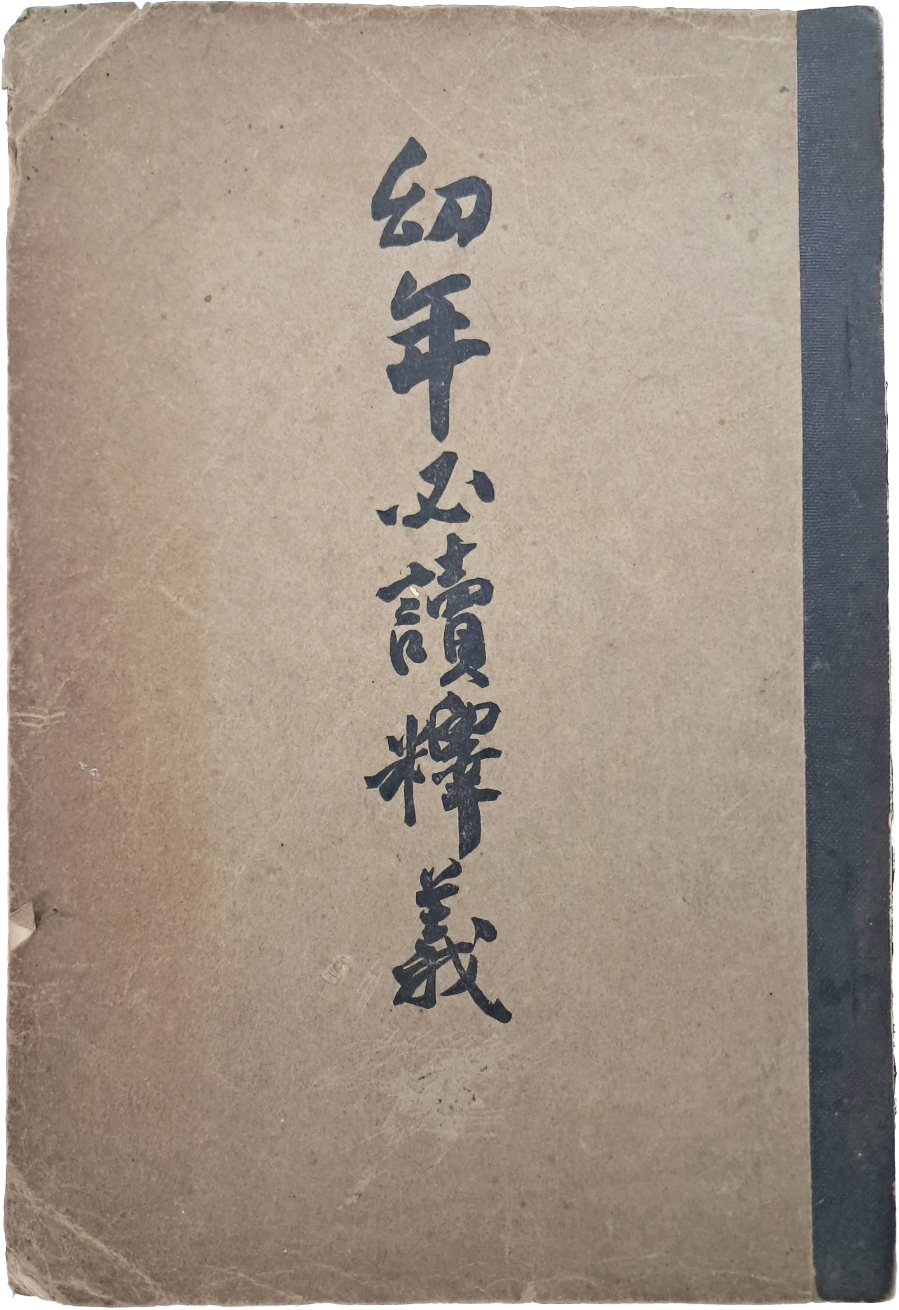 幼年必讀釋義